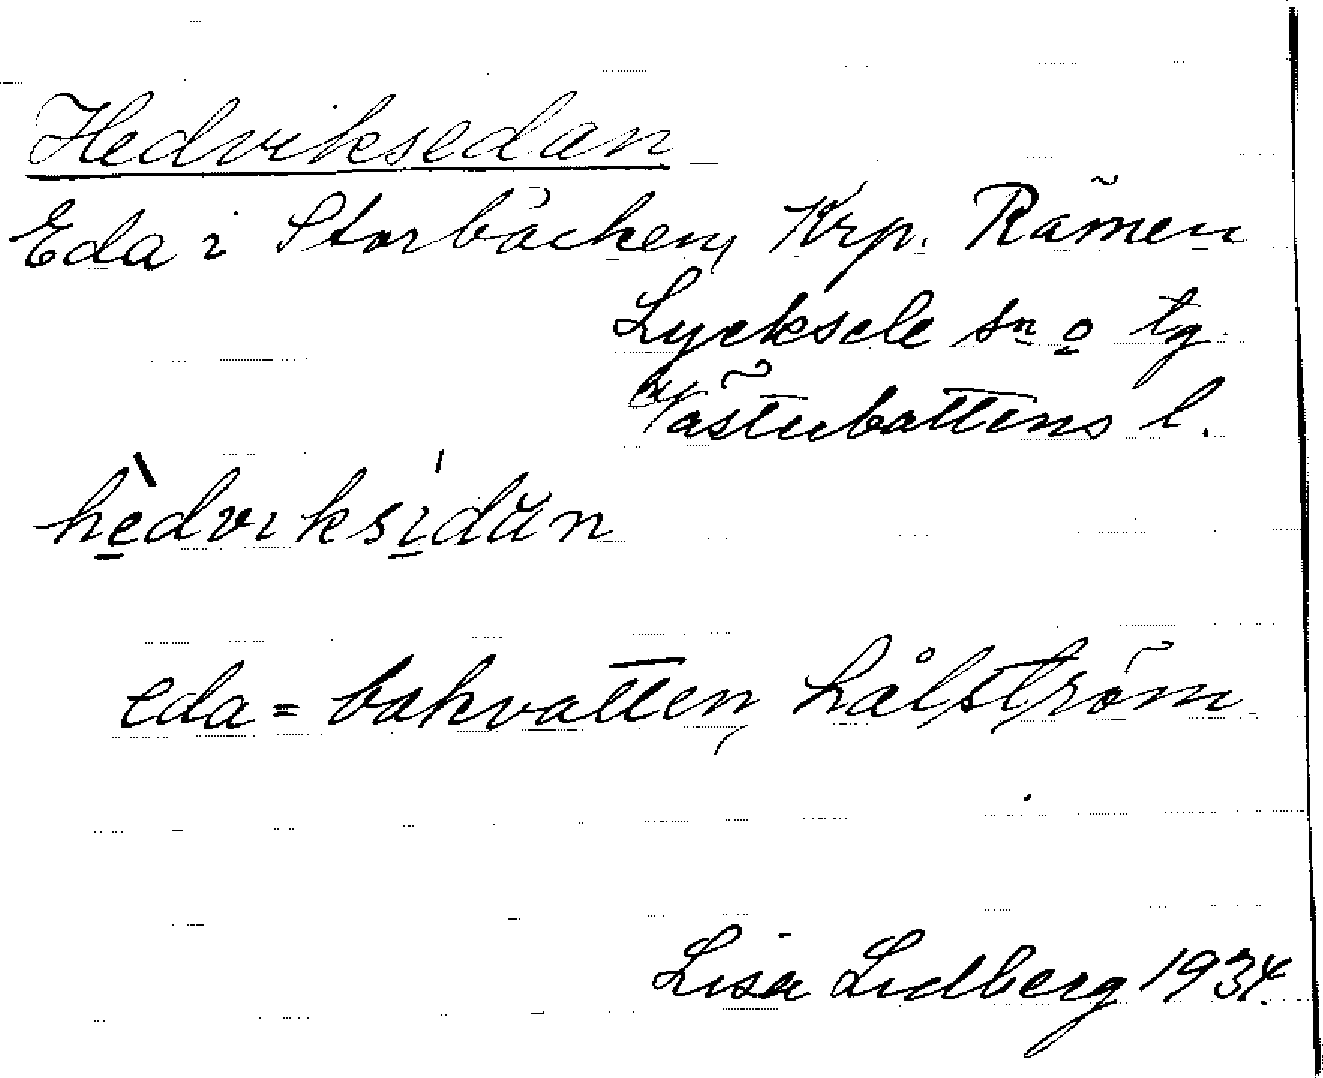 Hedviksedan
Eda i Storbäcken, Krp. Råmen
Lycksele sn o tg
Västerbottens l.
hèdviksídăn
eda = bakvatten, hålström
Lisa Lidberg 1934.